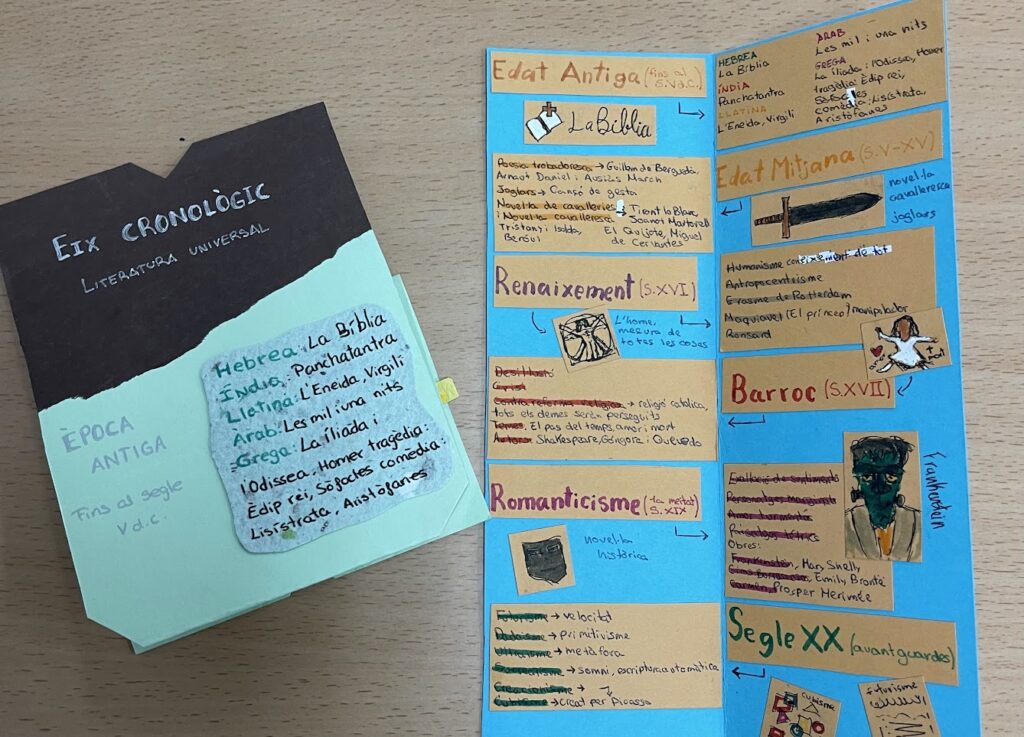 EIX CRONOLÒGIC
LITERATURA UNIVERSAL
Hebrea: La Bíblia
Índia: Panchatantra
Llatina: L'Eneida, Virgili
Arab: Les mil i una nits
Grega: La Ilíada i
l'Odissea, Homer tragèdia:
Èdip rei, Sòfocles comèdia:
Lisístrata, Aristòfanes
ÈPOCA
ANTIGA
Fins al segle
V d.C.
Edat Antiga (fins al
S.V d.C.)
La Bíblia
Poesia trobadoresca → Guillem de Berguedà,
Arnaut Daniel i Ausiàs March
Joglars → Cançó de gesta
Novel·la de cavalleries
i Novel·la cavalleresca → Tirant lo Blanc,
Joanot Martorell
Tristany i Isolda,
Beróul
El Quijote, Miguel
de Cervantes
Renaixement (S.XVI)
L'home,
mesura de
totes les coses
Contrareforma religiosa → religió catòlica,
tots els demes seràn perseguits
Temes: El pas del temps, amor i mort
Autors: Shakespeare, Góngora i Quevedo
Romanticisme (1a meitat
S.XIX)
novel·la
històrica
Futurisme → velocitat
Dadaisme → primitivisme
Ultraisme → metàfora
Surrealisme → somni, escriptura automàtica
Creacionisme →
Cubisme → Creat per Picasso
HEBREA
La Bíblia
ÍNDIA
Panchatantra
LLATINA
L'Eneida, Virgili
ARAB
Les mil i una nits
GREGA
La ilíada i l'Odissea, Homer
tragèdia: Èdip rei,
Sòfocles
comèdia: Lisístrata,
Aristòfanes
Edat Mitjana (S.V-XV)
novel·la
cavalleresca
joglars
Humanisme coneixement de tot
Antropocentrisme
Erasme de Rotterdam
Maquiavel (El príncep) manipulador
Ronsard
Barroc (S.XVII)
Exaltació de sentiments
Obres:
Frankenstein, Mary Shelly
Emily Brontë
Carmen, Prosper Merimée
Frankenstein
Segle XX (avantguardes)
cubisme
futurisme